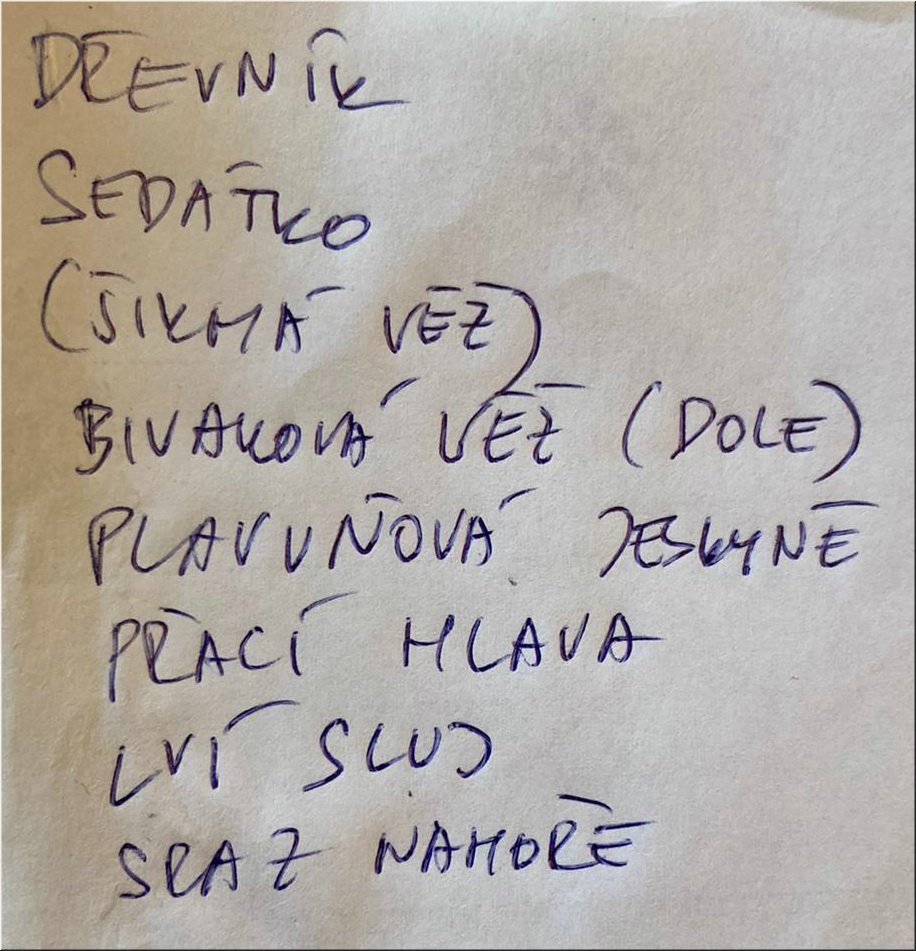 DŘEVNÍK
SEDÁTKO
(ŠIKMÁ VĚŽ)
BIVAKOVÁ VĚŽ (DOLE)
PLAVUŇOVÁ JESKYNĚ
PRACÍ HLAVA
LVÍ SLUJ
SRAZ NAHOŘE